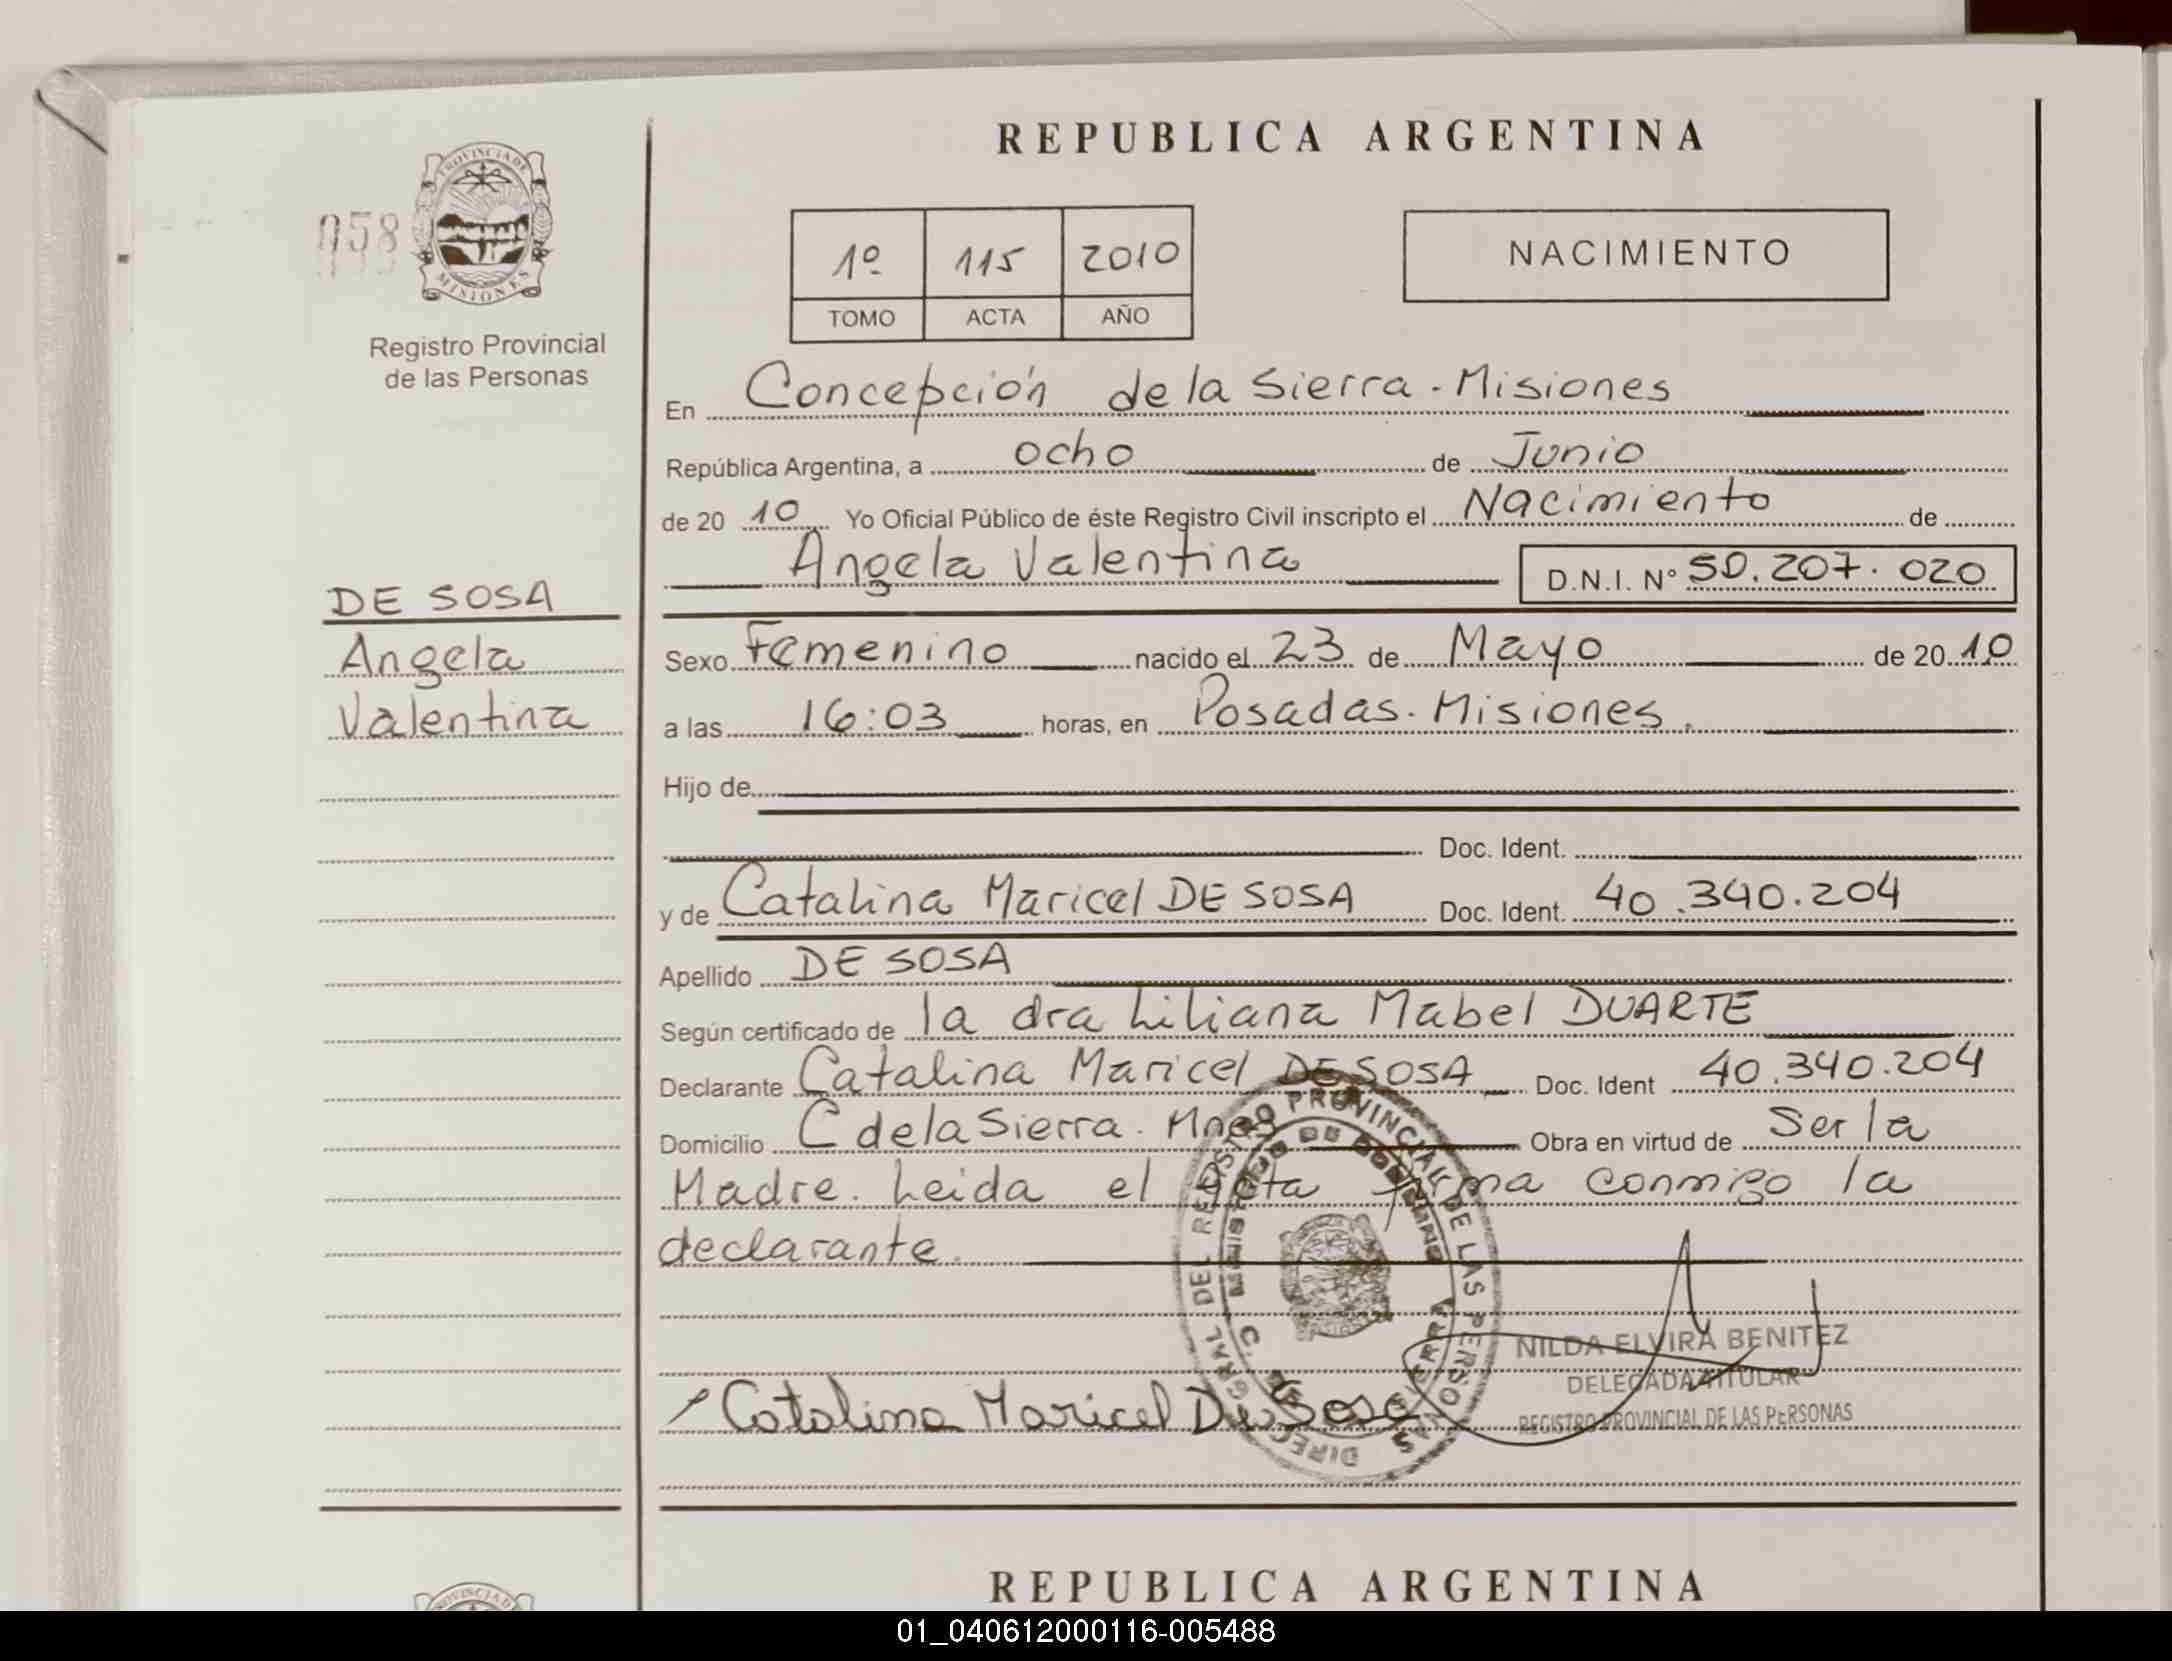 REPUBLICA ARGENTINA
058
PROVINCIA DE MISIONES
Registro Provincial
de las Personas
1º 115 2010
TOMO ACTA AÑO
NACIMIENTO
En Concepción de la Sierra - Misiones
República Argentina, a ocho de Junio
de 20 10 Yo Oficial Público de éste Registro Civil inscripto el Nacimiento de
Angela Valentina D.N.I. Nº 50.207.020
DE SOSA
Angela
Valentina
Sexo Femenino nacido el 23 de Mayo de 20 10
a las 16:03 horas, en Posadas. Misiones.
Hijo de
Doc. Ident.
y de Catalina Maricel DE SOSA Doc. Ident. 40.340.204
Apellido DE SOSA
Según certificado de la dra Liliana Mabel DUARTE
Declarante Catalina Maricel DE SOSA Doc. Ident 40.340.204
Domicilio C de la Sierra. Mnes Obra en virtud de Ser la
Madre. Leida el acta firma conmigo la
declarante.
DIREC GRAL DEL REGISTRO PROVINCIAL DE LAS PERSONAS
MINISTERIO DE GOBIERNO
C. DE SIERRA
NILDA ELVIRA BENITEZ
DELEGADA TITULAR
REGISTRO PROVINCIAL DE LAS PERSONAS
Catalina Maricel De Sosa
PROVINCIA D
REPUBLICA ARGENTINA
01_040612000116-005488